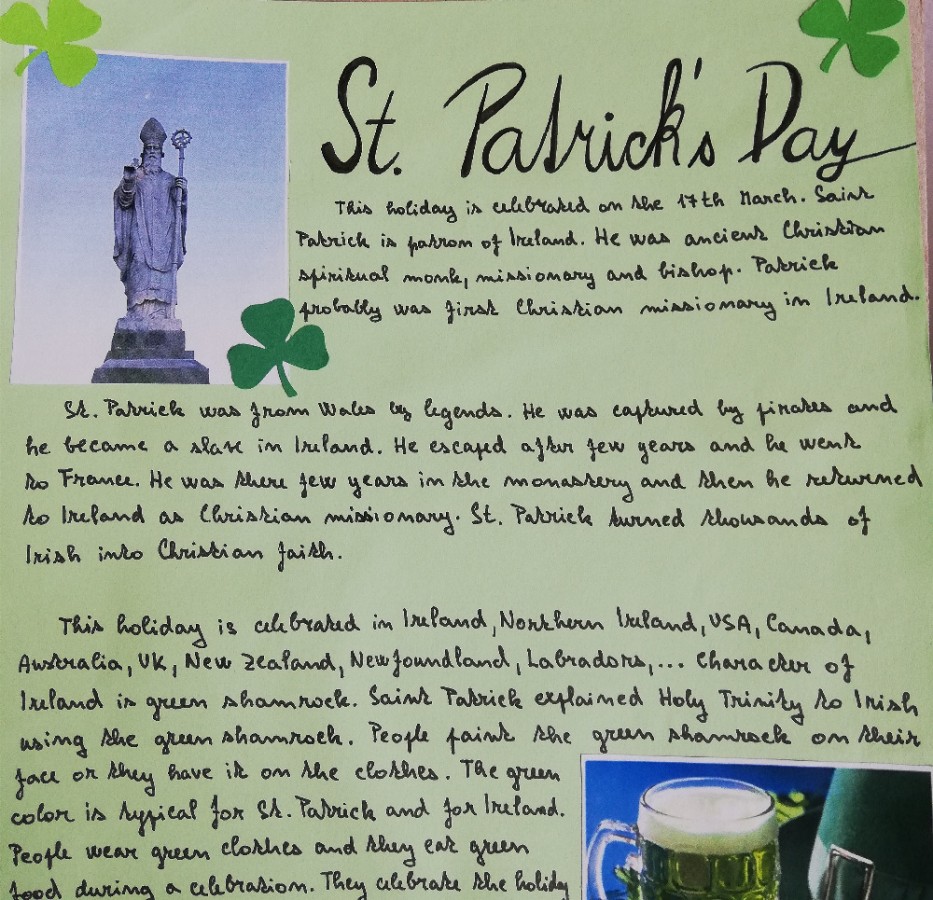 St. Patrick's Day
This holiday is celebrated on the 17th March. Saint
Patrick is patron of Ireland. He was ancient Christian
spiritual monk, missionary and bishop. Patrick
probably was first Christian missionary in Ireland.
St. Patrick was from Wales by legends. He was captured by pirates and
he became a slave in Ireland. He escaped after few years and he went
to France. He was there few years in the monastery and then he returned
to Ireland as Christian missionary. St. Patrick turned thousands of
Irish into Christian faith.
This holiday is celebrated in Ireland, Northern Ireland, USA, Canada,
Australia, UK, New Zealand, Newfoundland, Labradors,... Character of
Ireland is green shamrock. Saint Patrick explained Holy Trinity to Irish
using the green shamrock. People paint the green shamrock on their
face or they have it on the clothes. The green
color is typical for St. Patrick and for Ireland.
People wear green clothes and they eat green
food during a celebration. They celebrate the holiday